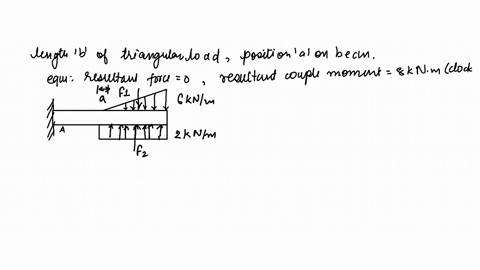 length 'b' of triangular load, position 'a' on beam.
equi: resultant force = 0, resultant couple moment = 8 kN.m (clock
a F1 6 kN/m
A 2 kN/m
F2